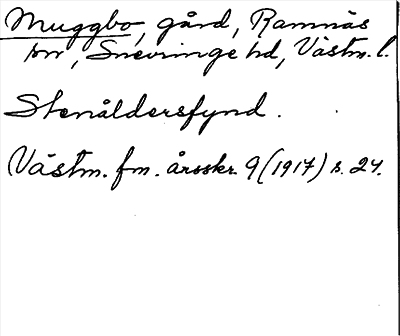 Muggbo, gård, Ramnäs
sn, Snevringe hd, Västm. l.
Stenåldersfynd.
Västm. fm. årsskr. 9 (1917) s. 24.